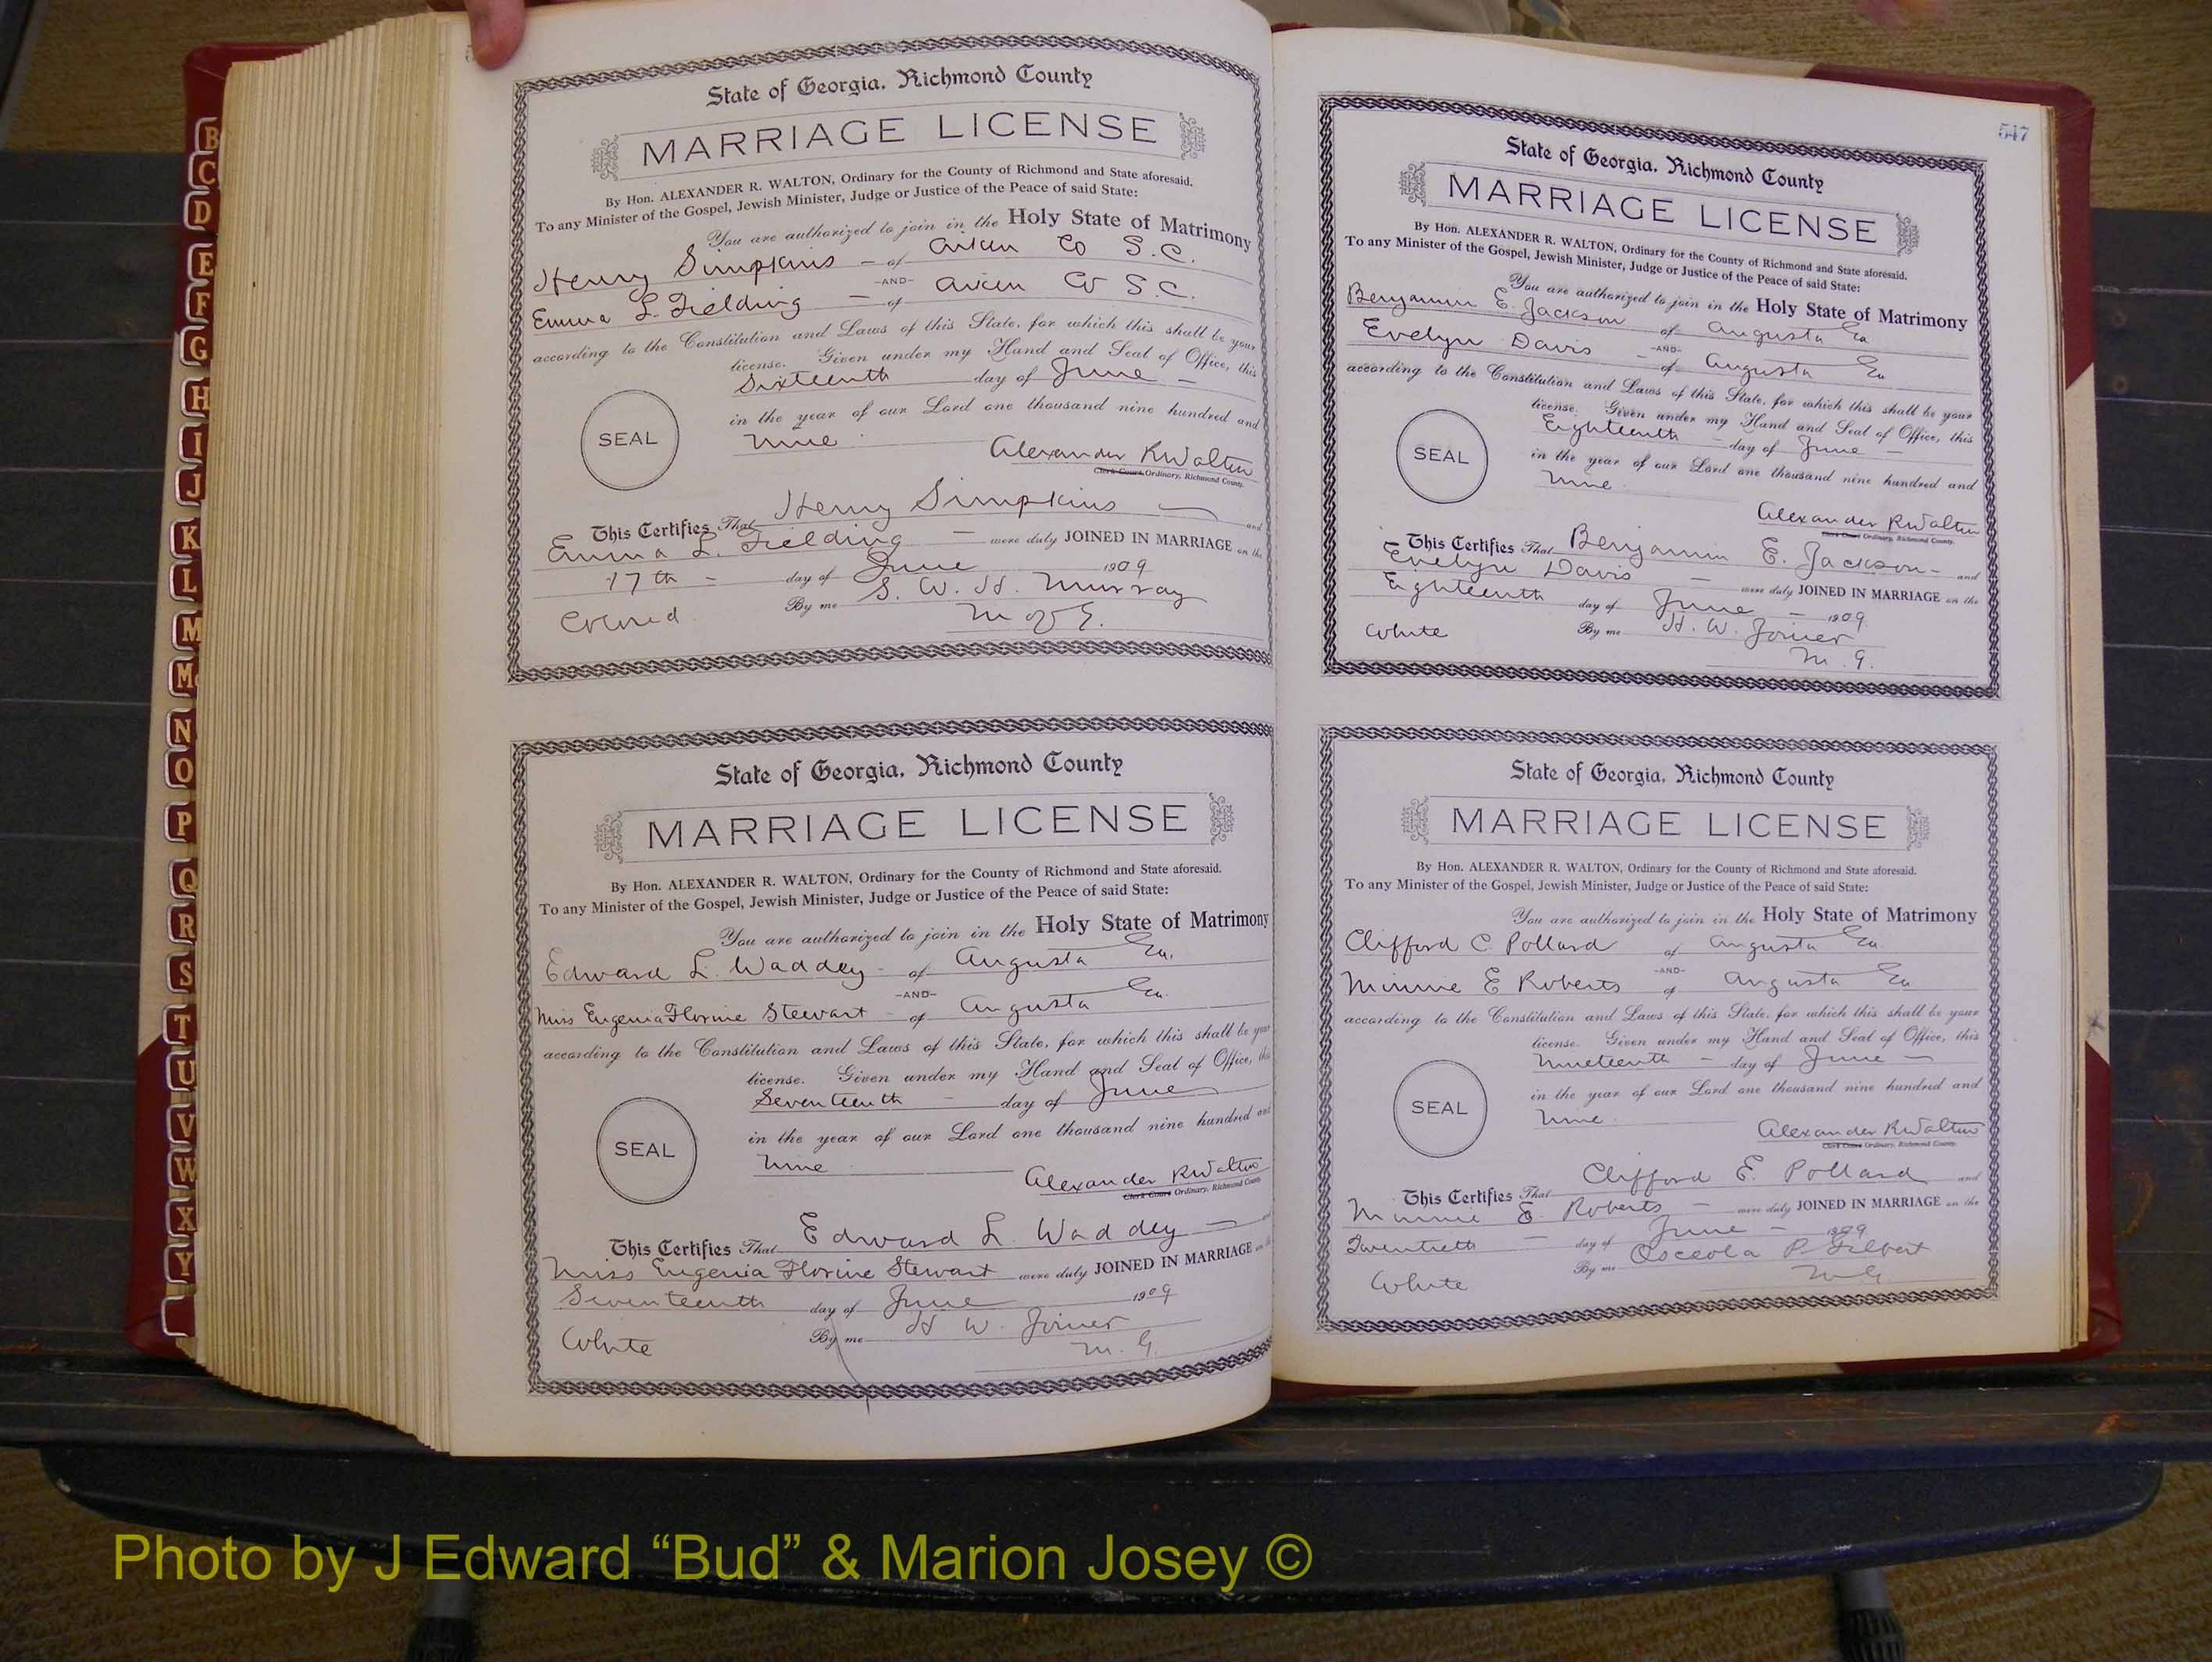 B
C
D
E
F
G
H
I
J
K
L
M
Mc
N
O
P
Q
R
S
T
U
V
W
X
Y
State of Georgia, Richmond County
MARRIAGE LICENSE
By Hon. ALEXANDER R. WALTON, Ordinary for the County of Richmond and State aforesaid.
To any Minister of the Gospel, Jewish Minister, Judge or Justice of the Peace of said State:
You are authorized to join in the Holy State of Matrimony
Henry Simpkins - of Aiken Co S.C.
-AND-
Emma L. Fielding - of Aiken Co S.C.
according to the Constitution and Laws of this State, for which this shall be your
license. Given under my Hand and Seal of Office, this
Sixteenth day of June -
in the year of our Lord one thousand nine hundred and
SEAL
nine
Alexander R Walton
Clerk Court Ordinary, Richmond County.
This Certifies That Henry Simpkins and
Emma L. Fielding - were duly JOINED IN MARRIAGE on the
17th - day of June 1909
By me S. W. H. Murray
Colored
M of G.
State of Georgia, Richmond County
MARRIAGE LICENSE
By Hon. ALEXANDER R. WALTON, Ordinary for the County of Richmond and State aforesaid.
To any Minister of the Gospel, Jewish Minister, Judge or Justice of the Peace of said State:
You are authorized to join in the Holy State of Matrimony
Edward L. Waddey - of Augusta Ga.
-AND-
Miss Eugenia Florine Stewart - of Augusta Ga.
according to the Constitution and Laws of this State, for which this shall be your
license. Given under my Hand and Seal of Office, this
Seventeenth - day of June
in the year of our Lord one thousand nine hundred and
SEAL
nine
Alexander R Walton
Clerk Court Ordinary, Richmond County
This Certifies That Edward L. Waddey -
Miss Eugenia Florine Stewart were duly JOINED IN MARRIAGE on
Seventeenth day of June 1909
By me H W. Joiner
White
M. G.
547
State of Georgia, Richmond County
MARRIAGE LICENSE
By Hon. ALEXANDER R. WALTON, Ordinary for the County of Richmond and State aforesaid.
To any Minister of the Gospel, Jewish Minister, Judge or Justice of the Peace of said State:
You are authorized to join in the Holy State of Matrimony
Benjamin E. Jackson of Augusta Ga
-AND-
Evelyn Davis - of Augusta Ga
according to the Constitution and Laws of this State, for which this shall be your
license. Given under my Hand and Seal of Office, this
Eighteenth - day of June -
in the year of our Lord one thousand nine hundred and
SEAL
nine
Alexander R Walton
Clerk Court Ordinary, Richmond County.
This Certifies That Benjamin E. Jackson - and
Evelyn Davis - were duly JOINED IN MARRIAGE on the
Eighteenth day of June - 1909
By me H. W. Joiner
White
M. G.
State of Georgia, Richmond County
MARRIAGE LICENSE
By Hon. ALEXANDER R. WALTON, Ordinary for the County of Richmond and State aforesaid.
To any Minister of the Gospel, Jewish Minister, Judge or Justice of the Peace of said State:
You are authorized to join in the Holy State of Matrimony
Clifford C. Pollard of Augusta Ga.
-AND-
Minnie E Roberts of Augusta Ga
according to the Constitution and Laws of this State, for which this shall be your
license. Given under my Hand and Seal of Office, this
Nineteenth - day of June -
in the year of our Lord one thousand nine hundred and
SEAL
nine
Alexander R Walton
Clerk Court Ordinary, Richmond County
This Certifies That Clifford E. Pollard and
Minnie E. Roberts - were duly JOINED IN MARRIAGE on the
Twentieth - day of June - 1909
By me Osceola P. Gilbert
White
M G
Photo by J Edward “Bud” & Marion Josey ©